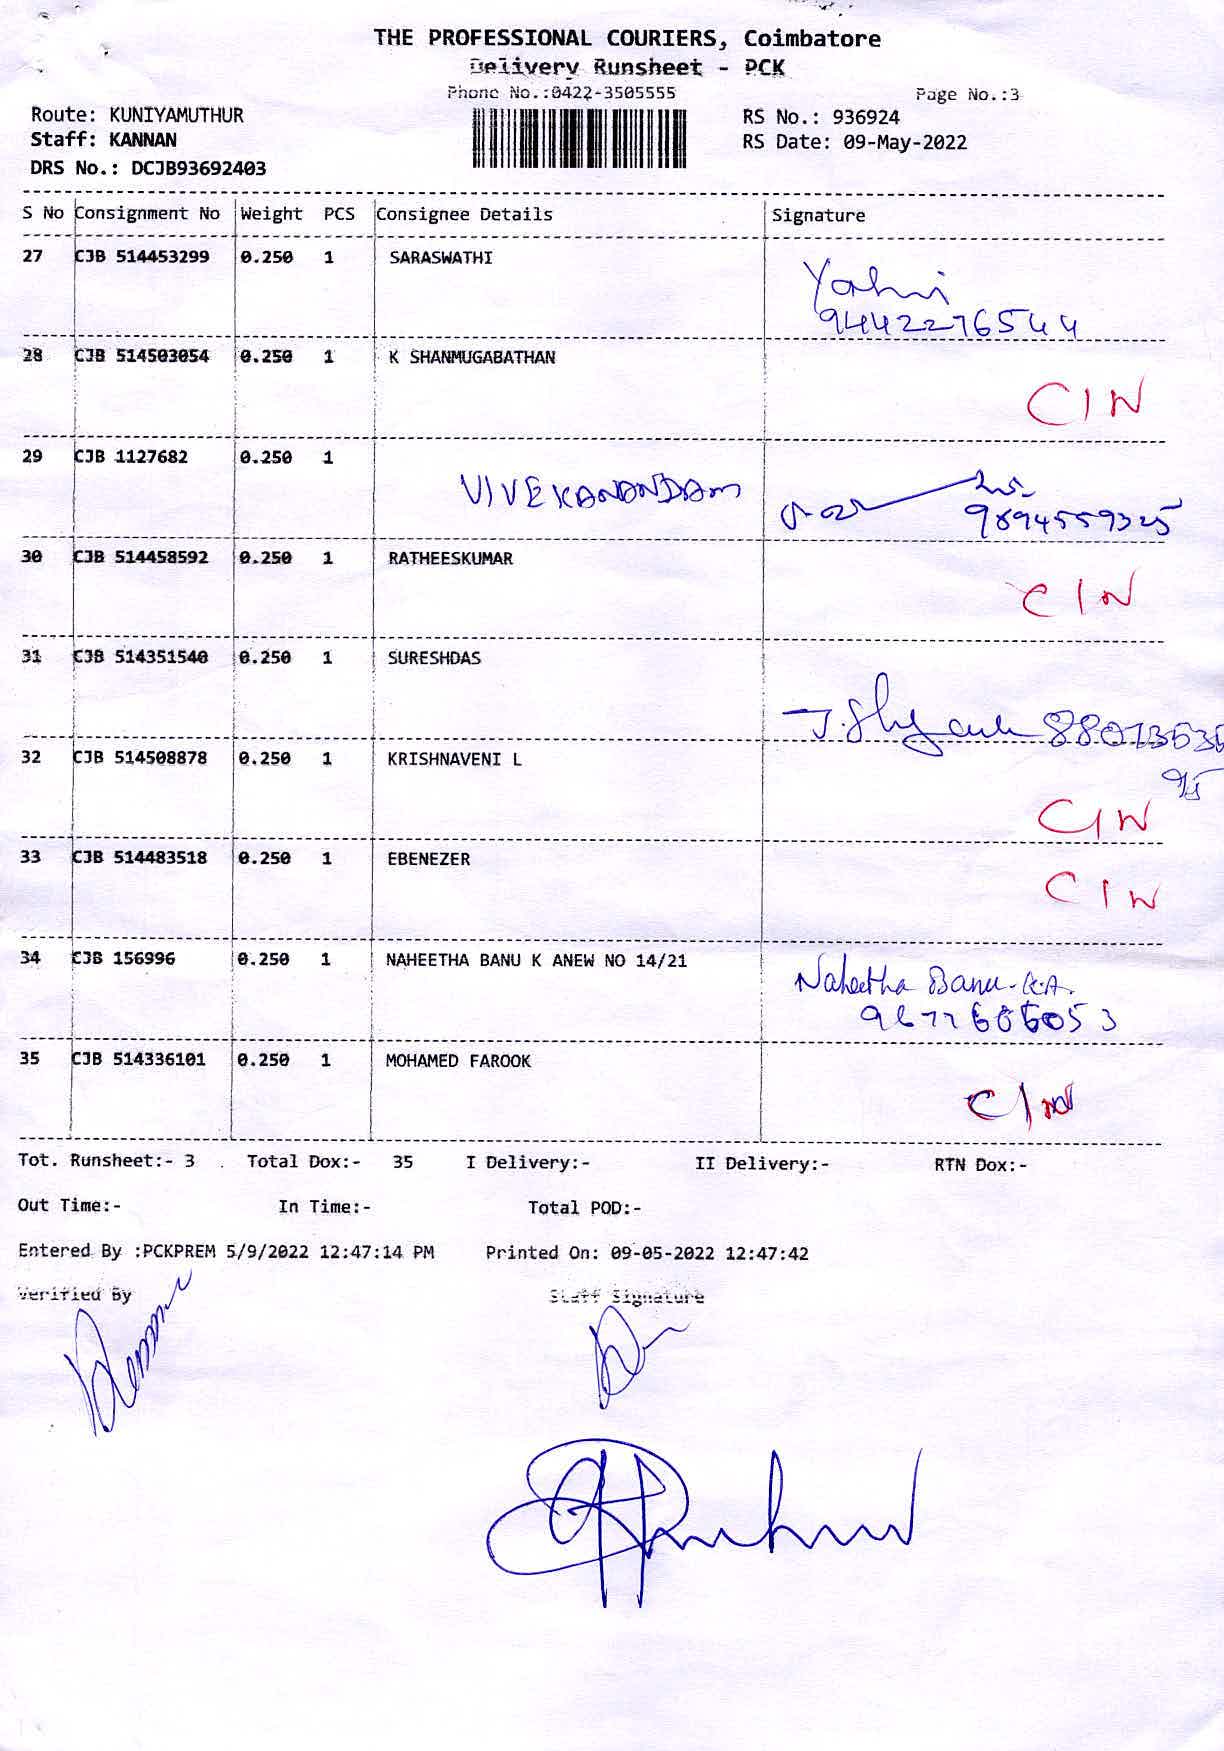 THE PROFESSIONAL COURIERS, Coimbatore
Delivery Runsheet - PCK
Phone No.:0422-3505555
Page No.:3
Route: KUNIYAMUTHUR
RS No.: 936924
Staff: KANNAN
RS Date: 09-May-2022
DRS No.: DCJB93692403
S No Consignment No Weight PCS Consignee Details Signature
27 CJB 514453299 0.250 1 SARASWATHI
9442276544
28 CJB 514503054 0.250 1 K SHANMUGABATHAN
CIN
29 CJB 1127682 0.250 1
VIVEKANANDAM
9894559325
30 CJB 514458592 0.250 1 RATHEESKUMAR
CIN
31 CJB 514351540 0.250 1 SURESHDAS
32 CJB 514508878 0.250 1 KRISHNAVENI L
95
CIN
33 CJB 514483518 0.250 1 EBENEZER
CIN
34 CJB 156996 0.250 1 NAHEETHA BANU K ANEW NO 14/21
Naheetha Banu.K.A.
35 CJB 514336101 0.250 1 MOHAMED FAROOK
CIN
Tot. Runsheet:- 3 Total Dox:- 35 I Delivery:- II Delivery:- RTN Dox:-
Out Time:- In Time:- Total POD:-
Entered By :PCKPREM 5/9/2022 12:47:14 PM Printed On: 09-05-2022 12:47:42
Verified By Staff Signature